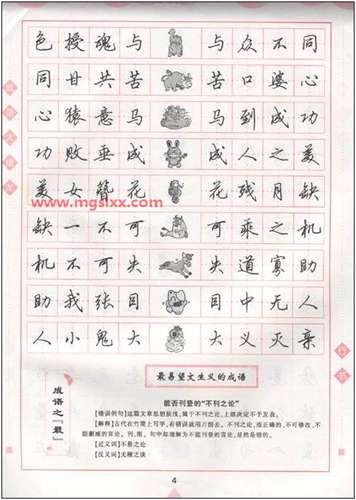 色授魂与 与众不同
同甘共苦 苦口婆心
心猿意马 马到成功
功败垂成 成人之美
美女簪花 花残月缺
www.mgslxx.com
缺一不可 可乘之机
机不可失 失道寡助
助我张目 目中无人
人小鬼大 大义灭亲
最易望文生义的成语
成语之“最”
能否刊登的“不刊之论”
[错误例句]这篇文章思想肤浅,属于不刊之论,上级决定不予发表。
[解释]古代在竹简上写字,有错误就用刀削去。不刊之论,指正确的、不可修改、不
能删减的言论。刊,削。句中却理解为不能刊登的言论,显然是错的。
[近义词]不易之论
[反义词]无稽之谈
4